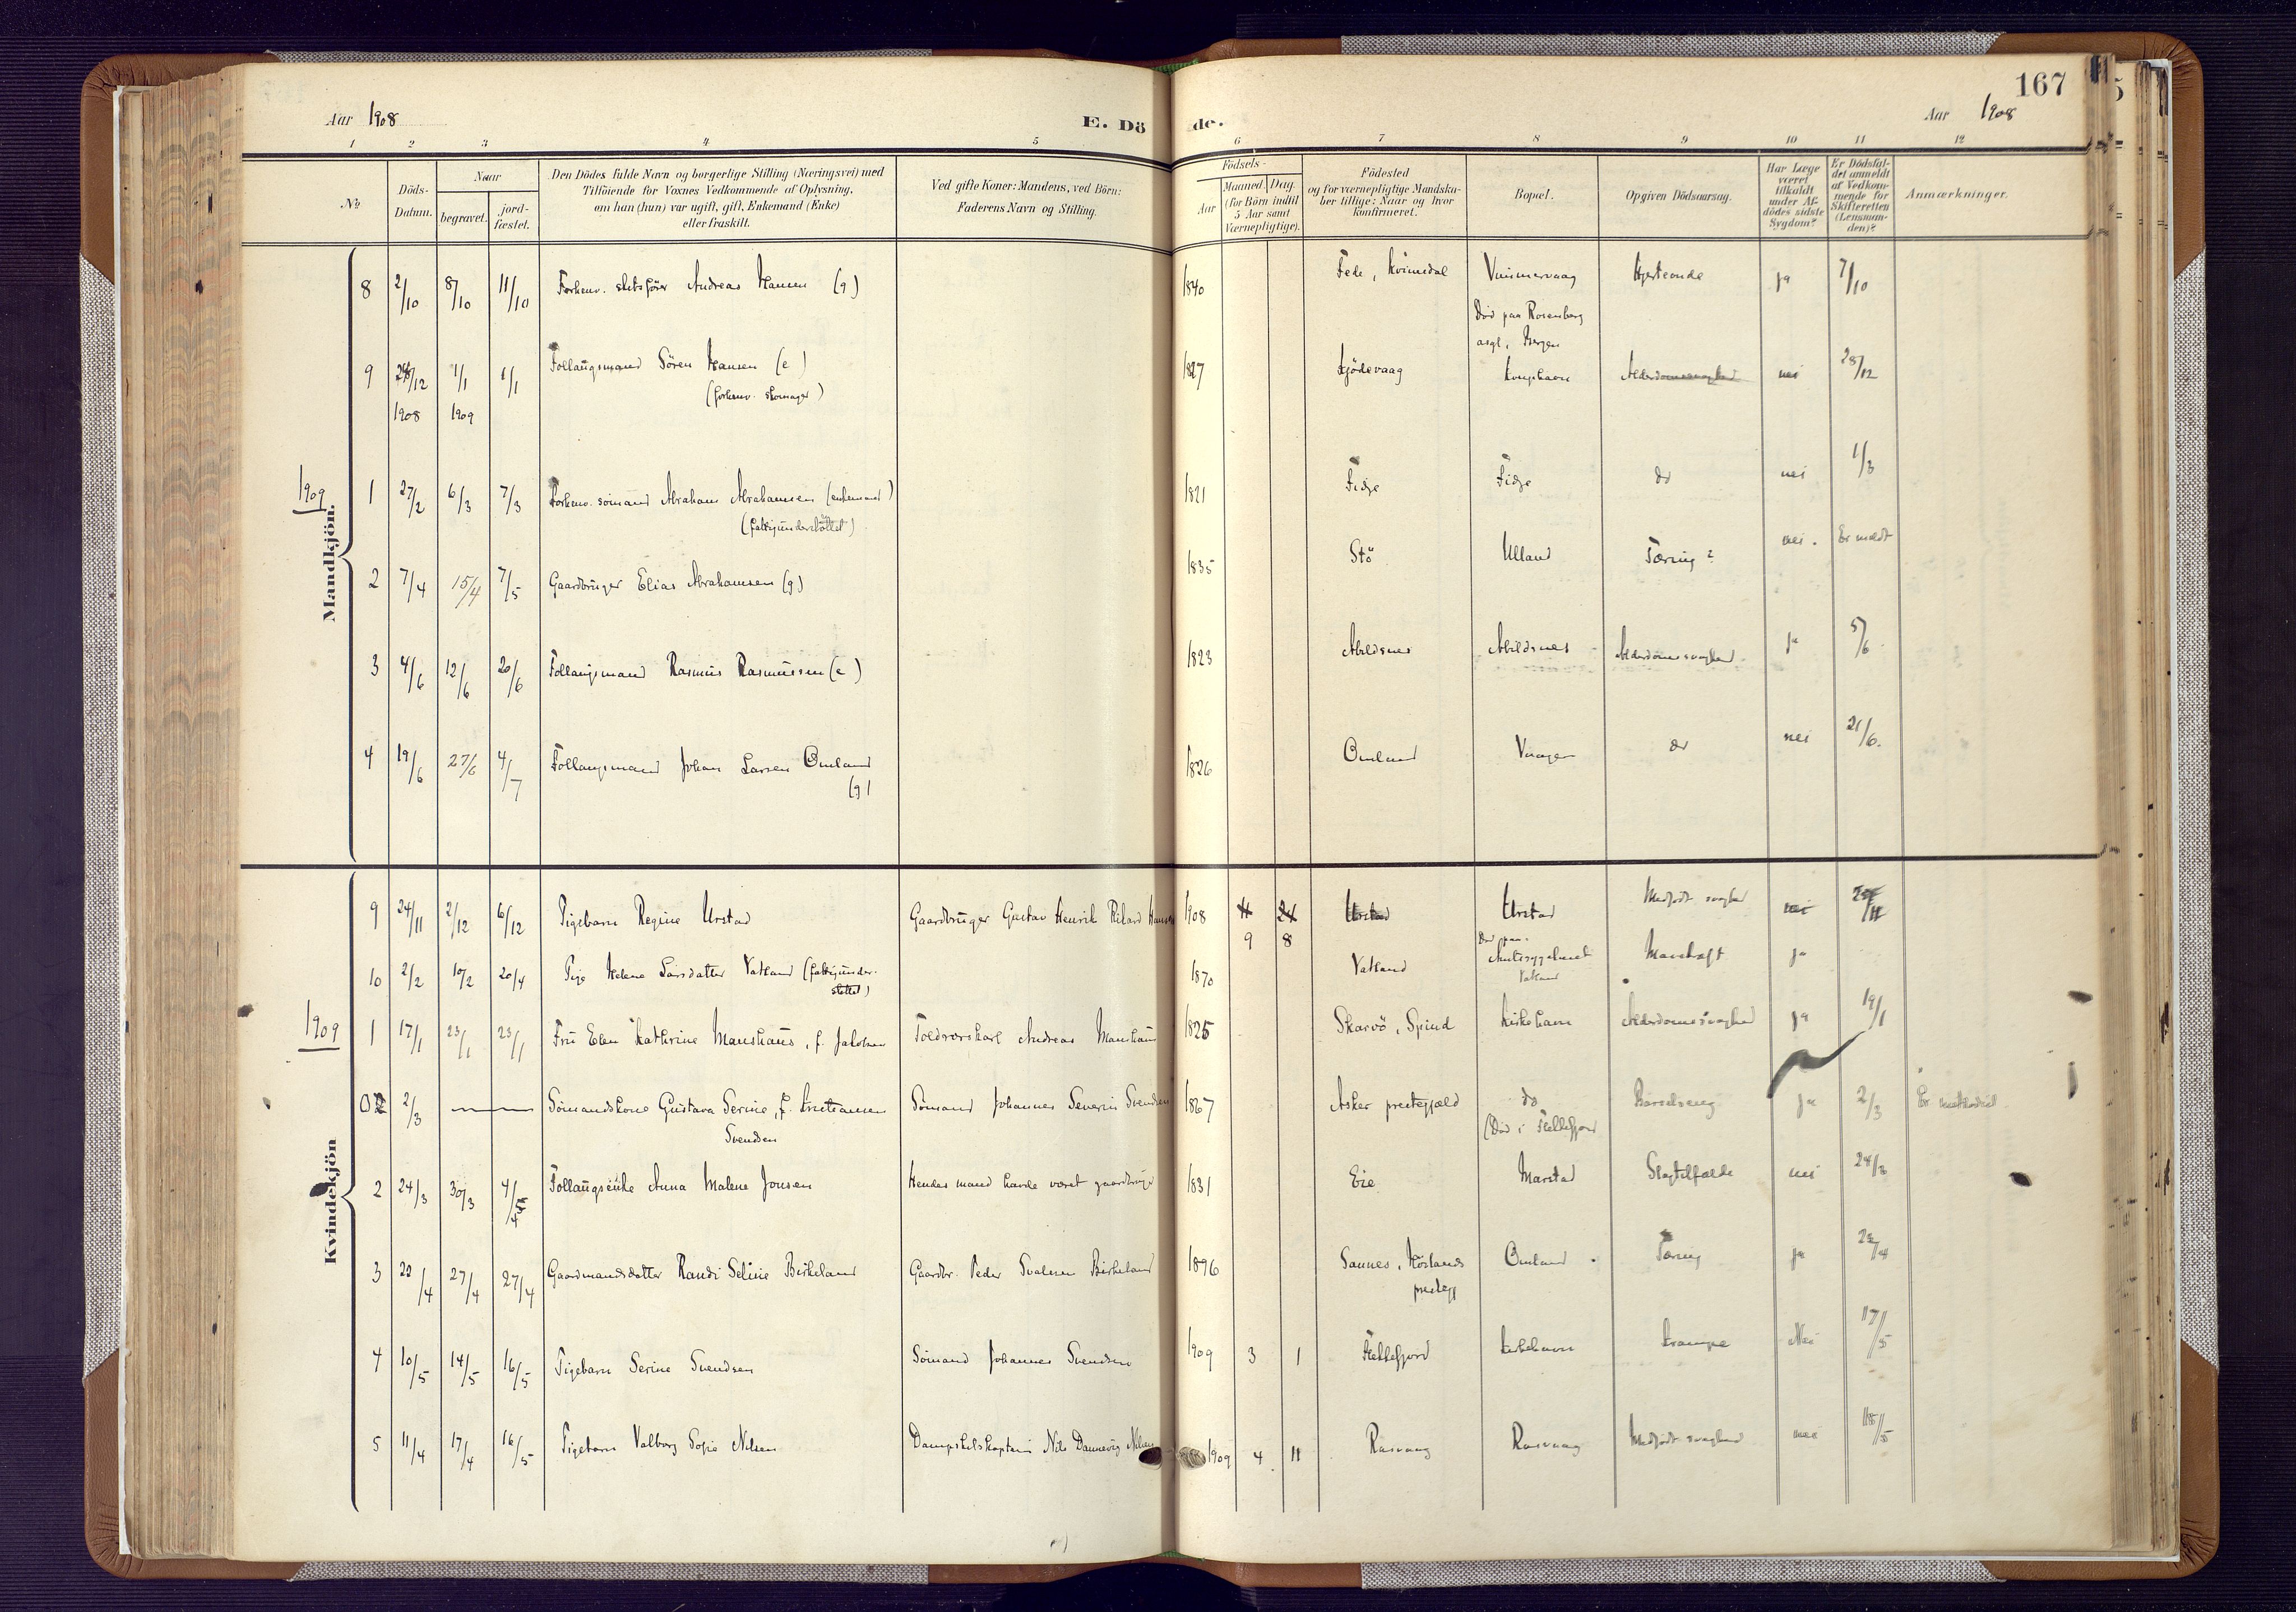 167
Aar 1908
E. Dö
de.
Aar 1908
1 2 3 4 5 6 7 8 9 10 11 12
No
Döds-Datum.
Naar
begravet.
jord-fæstet.
Den Dödes fulde Navn og borgerlige Stilling (Næringsvei) med
Tilföiende for Voxnes Vedkommende af Oplysning,
om han (hun) var ugift, gift, Enkemand (Enke)
eller fraskilt.
Ved gifte Koner: Mandens, ved Börn:
Faderens Navn og Stilling.
Födsels-
Aar
Maaned. Dag.
(for Börn indtil
5 Aar samt
Værnepligtige).
Födested
og for værnepligtige Mandska-
ber tillige: Naar og hvor
konfirmeret.
Bopæl.
Opgiven Dödsaarsag.
Har Læge
været
tilkaldt
under Af-
dödes sidste
Sygdom?
Er Dödsfal-
det anmeldt
af Vedkom-
mende for
Skifteretten
(Lensman-
den)?
Anmærkninger.
Mandkjön.
8 2/10 8/10 11/10 Forhenv. skibsfører Andreas Hansen (g) 1840 Fede, Kvinesdal Hjerteonde ja 7/10
Død paa Rosenberg
asyl, Bergen
9 28/12 1/1 1/1 Follaugsmand Sören Hansen (e) 1827 Kjödevaag Alderdomssvaghed nei 28/12
(forhenv. skomager)
1908 1909
1909
1 27/2 6/3 7/3 Forhenv. sömand Abraham Abrahamsen (enkemand) 1821 Fidje Fidje do nei 1/3
(fattigunderstöttet)
2 7/4 15/4 7/5 Gaardbruger Elias Abrahamsen (g) 1835 Stö Ulland Tæring? nei. Er meldt
3 4/6 12/6 20/6 Follaugsmand Rasmus Rasmussen (e) 1823 Abildsnes Abildsnes Alderdomssvaghed ja 5/6
4 19/6 27/6 4/7 Follaugsmand Johan Larsen Omland 1826 Omland Vaagen do nei 21/6.
(g)
Kvindekjön
9 24/11 2/12 6/12 Pigebarn Regine Urstad Gaardbruger Gustav Henrik Rikard Hansen 1908 11 24 Urstad Urstad Medfødt svaghed nei 25/11
9 8
10 2/2 10/2 20/4 Pige Helene Larsdatter Vatland (fattigunder- 1870 Vatland Død paa Amtssygehuset Vatland ja
støttet)
1909
1 17/1 23/1 23/1 Fru Elen Kathrine Manshaus, f. Jakobsen Toldroerskarl Andreas Manshaus 1825 Skarvö, Spind Kirkehavn Alderdomssvaghed ja 19/1
02 2/3 Sömandskone Gustava Serine, f. Kristiansen Sömand Johannes Severin Svendsen 1867 Asker prestegjæld do Barselseng ja 2/3
Svendsen (Død i Flekkefjord
2 24/3 30/3 4/5 Follaugsenke Anna Malene Jonsen Hendes mand havde været gaardbruger 1831 Eie Marstad Slagtilfælde nei 24/3
4
3 22/4 27/4 27/4 Gaardmandsdatter Randi Seline Birkeland Gaardbr. Peder Svalesen Birkeland 1896 Sannes, Omland Tæring ja 22/4
prestegj
4 10/5 14/5 16/5 Pigebarn Serine Svendsen Sömand Johannes Svendsen 1909 3 1 Flekkefjord Kirkehavn Krampe Nei 17/5
5 11/4 17/4 16/5 Pigebarn Valborg Sofie Nilsen Dampskibskaptein Nils Dannevig Nilsen 1909 4 11 Rasvaag Rasvaag Medfødt svaghed nei 18/5